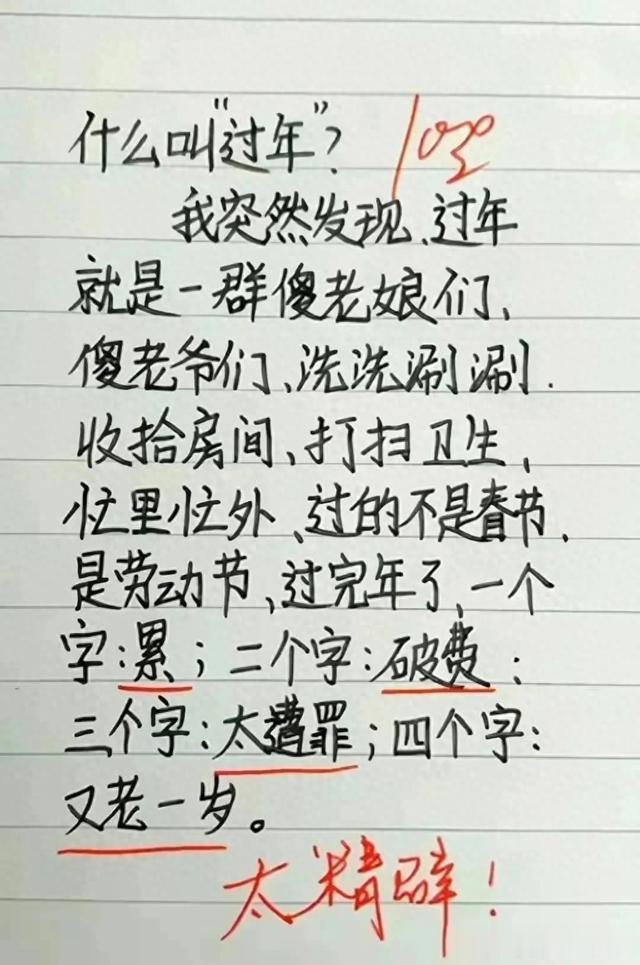 什么叫"过年"？ 100
我突然发现、过年
就是一群傻老娘们、
傻老爷们、洗洗涮涮.
收拾房间、打扫卫生、
忙里忙外、过的不是春节、
是劳动节、过完年了、一个
字:累；二个字:破费；
三个字:太遭罪；四个字:
又老一岁。
太精辟！